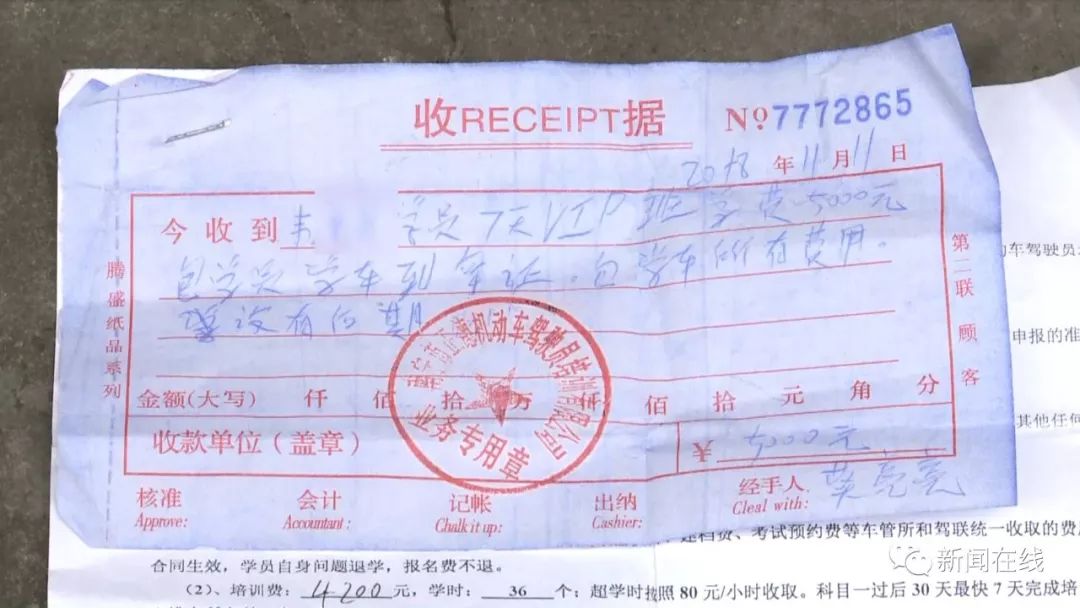 收RECEIPT据
No 7772865
2018 年 11 月 11 日
今收到 学员7天VIP班学费5000元
包学员学车到拿证。包学车所有费用。
没有后期
金额(大写) 仟 佰 拾 万 佰 拾 元 角 分
收款单位(盖章) ¥ 5000元
机动车驾驶员培训有限公司
业务专用章
核准 会计 记帐 出纳 经手人
Approve: Accountant: Chalk it up: Cashier: Cleal with:
腾盛纸品系列
第二联 顾客
车驾驶员
申报的准
其他任何
建档费、考试预约费等车管所和驾联统一收取的费
合同生效，学员自身问题退学，报名费不退。
(2)、培训费: 4200 元，学时: 36 个; 超学时按照 80 元/小时收取。科目一过后 30 天最快 7 天完成培
新闻在线